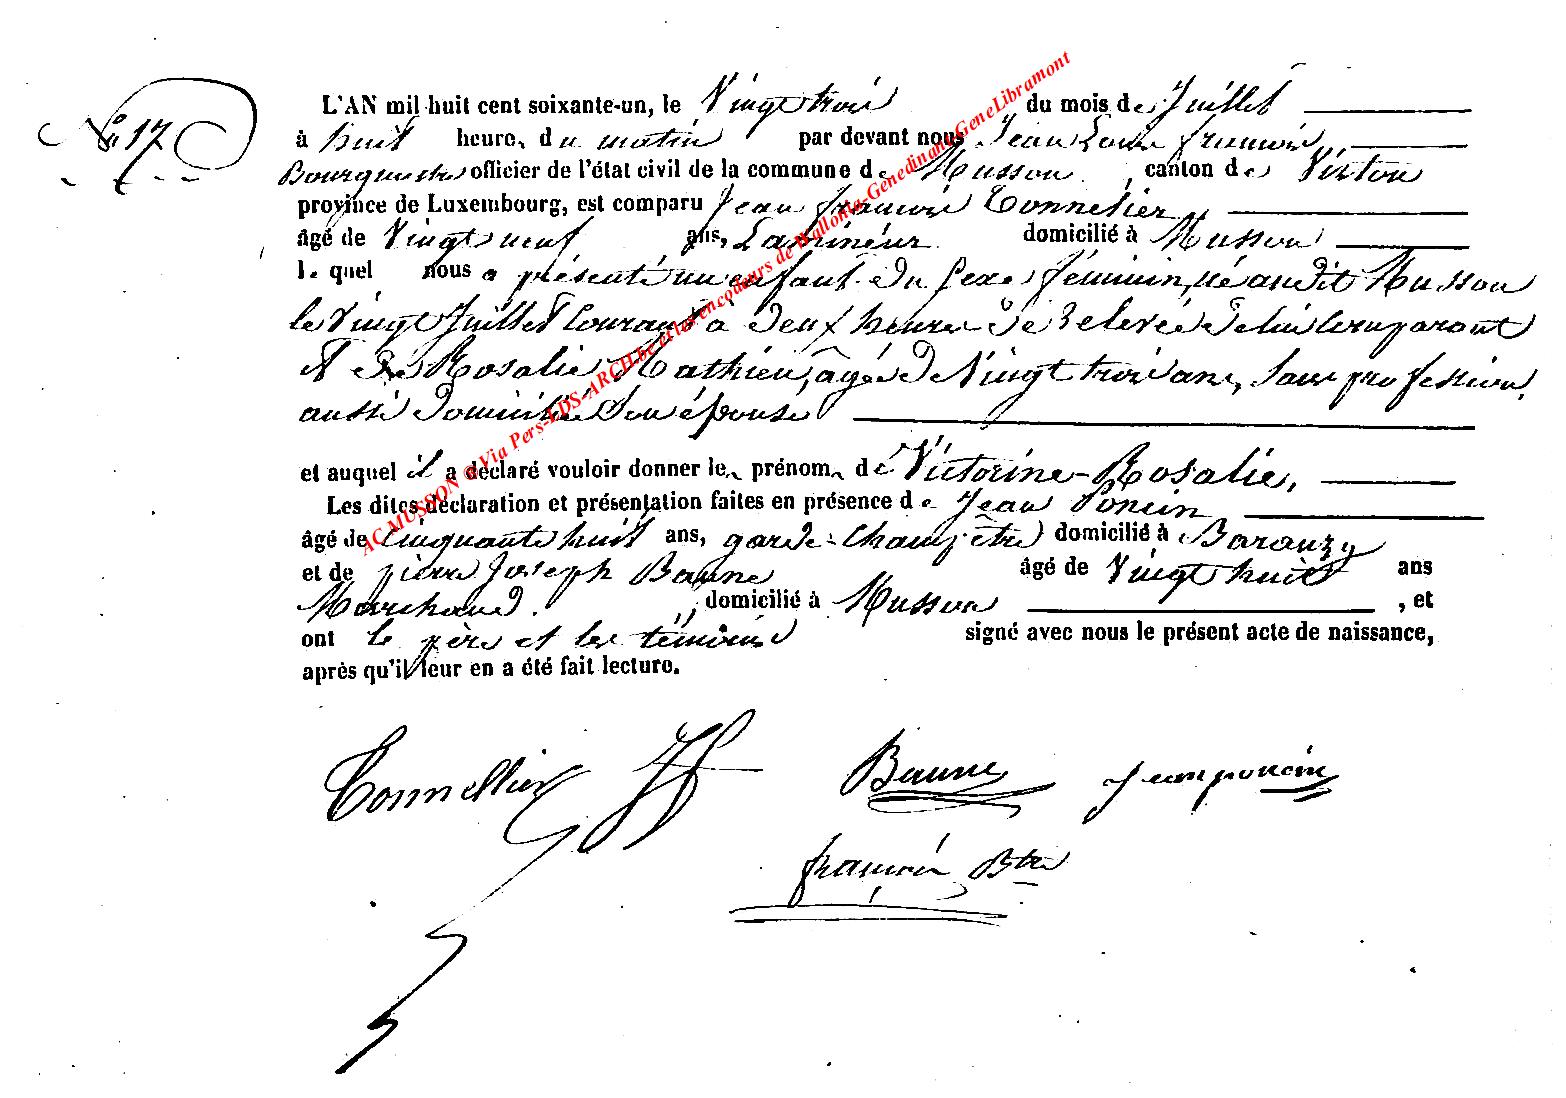 N° 17
L'AN mil huit cent soixante-un, le Vingt trois du mois de Juillet
à huit heures du matin par devant nous Jean Louis françois,
Bourgmestre officier de l'état civil de la commune de Musson, canton de Virton
province de Luxembourg, est comparu Jean françois Tonnelier,
âgé de Vingt neuf ans, Lamineur domicilié à Musson
le quel nous a présenté un enfant du sexe féminin, né audit Musson
le Vingt Juillet Courant à deux heures de relevée de lui Comparant
et de Rosalie Mathieu, agée de Vingt trois ans, sans profession,
aussi domiciliée son épouse
et auquel il a déclaré vouloir donner les prénoms de Victorine-Rosalie,
Les dites déclaration et présentation faites en présence de Jean Poncin
âgé de Cinquante huit ans, garde-Champêtre domicilié à Baranzy
et de pierre Joseph Baune âgé de Vingt huit ans
Marchand, domicilié à Musson, et
ont le père et les témoins signé avec nous le présent acte de naissance,
après qu'il leur en a été fait lecture.
Tonnellier JF Baune Jean poncin
françois Btre
AC MUSSON @ Via Pers-LDS-ARCH.be et les encodeurs de Wallonia-Genedinant-GeneLibramont